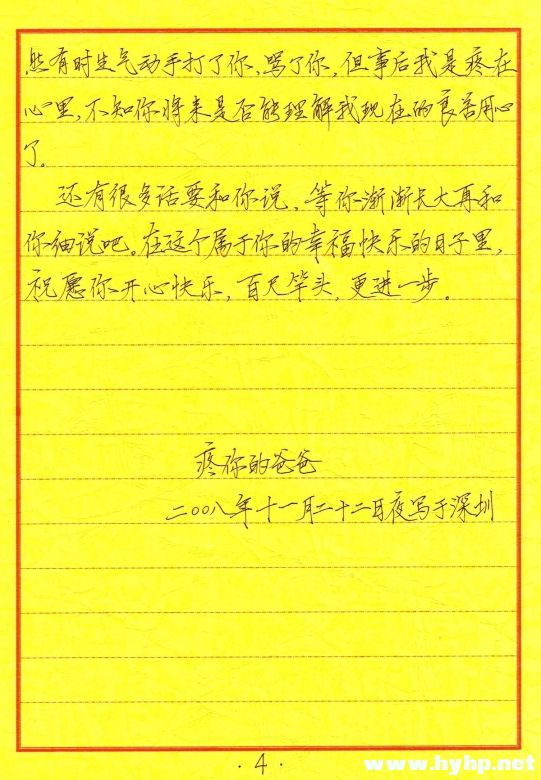 然有时生气动手打了你,骂了你,但事后我是疼在
心里,不知你将来是否能理解我现在的良苦用心
了。
还有很多话要和你说,等你渐渐长大再和
你细说吧。在这个属于你的幸福快乐的日子里,
祝愿你开心快乐,百尺竿头,更进一步。
疼你的爸爸
二〇〇八年十一月二十二日夜写于深圳
·4·
www.hyhp.net